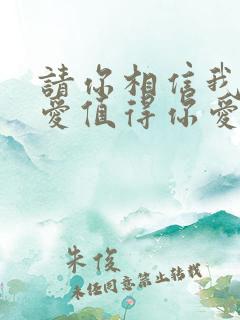 請你相信我
愛值得你愛
朱俊
未经同意禁止转载